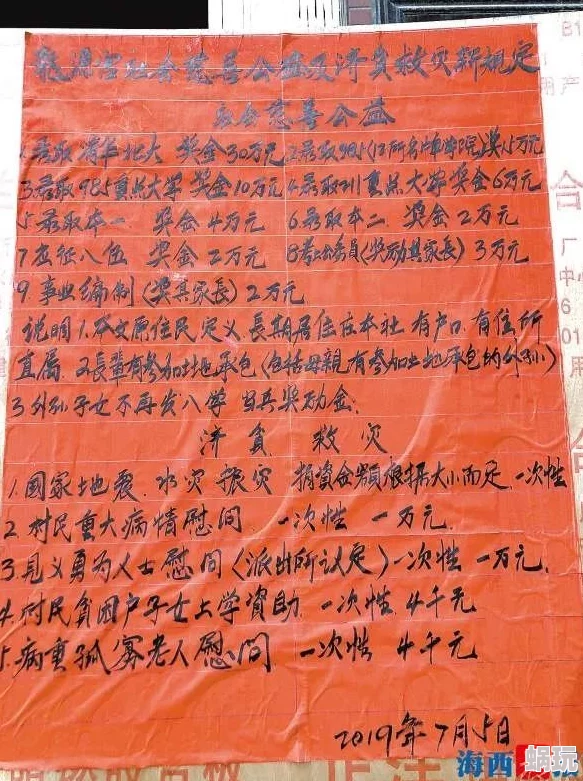 社会慈善公益及济貧救灾新规定
社会慈善公益
1录取清华北大 奖金30万元 2录取985(12所名牌学院)奖15万元
3录取985重点大学 奖金10万元 4录取211重点大学奖金6万元
5录取本一 奖金4万元 6录取本二 奖金2万元
7应征入伍 奖金2万元 8考公务员(奖励其家長)3万元
9事业编制(奖其家長)2万元
说明1.本文原住民定义長期居住在本社 有户口 有住所
直属 2長輩有参加土地承包(包括母親有参加土地承包的外孙)
3外孙子女不再发入学 当兵奖励金.
济貧 救灾
1.国家地震.水灾 捐資金額根据大小而定 一次性
2.村民重大病情慰问 一次性 一万元.
3.見义勇为人士慰问(派出所认定)一次性 一万元.
4.村民貧困户子女上学資助 一次性 4千元
5.病重孤寡老人慰问 一次性 4千元
2019年7月5日
海西
蝸玩
合
厂
中心
6
01
用
B1
用产